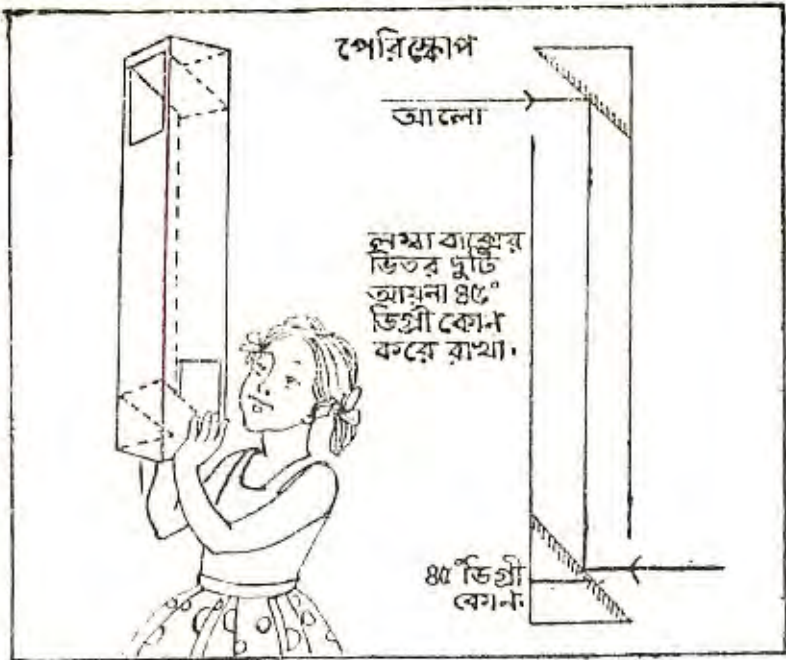 পেরিস্কোপ
আলো
লম্বা বাক্সের
ভিতর দুটি
আয়না ৪৫°
ডিগ্রী কোন
করে রাখা।
৪৫° ডিগ্রী
কোন